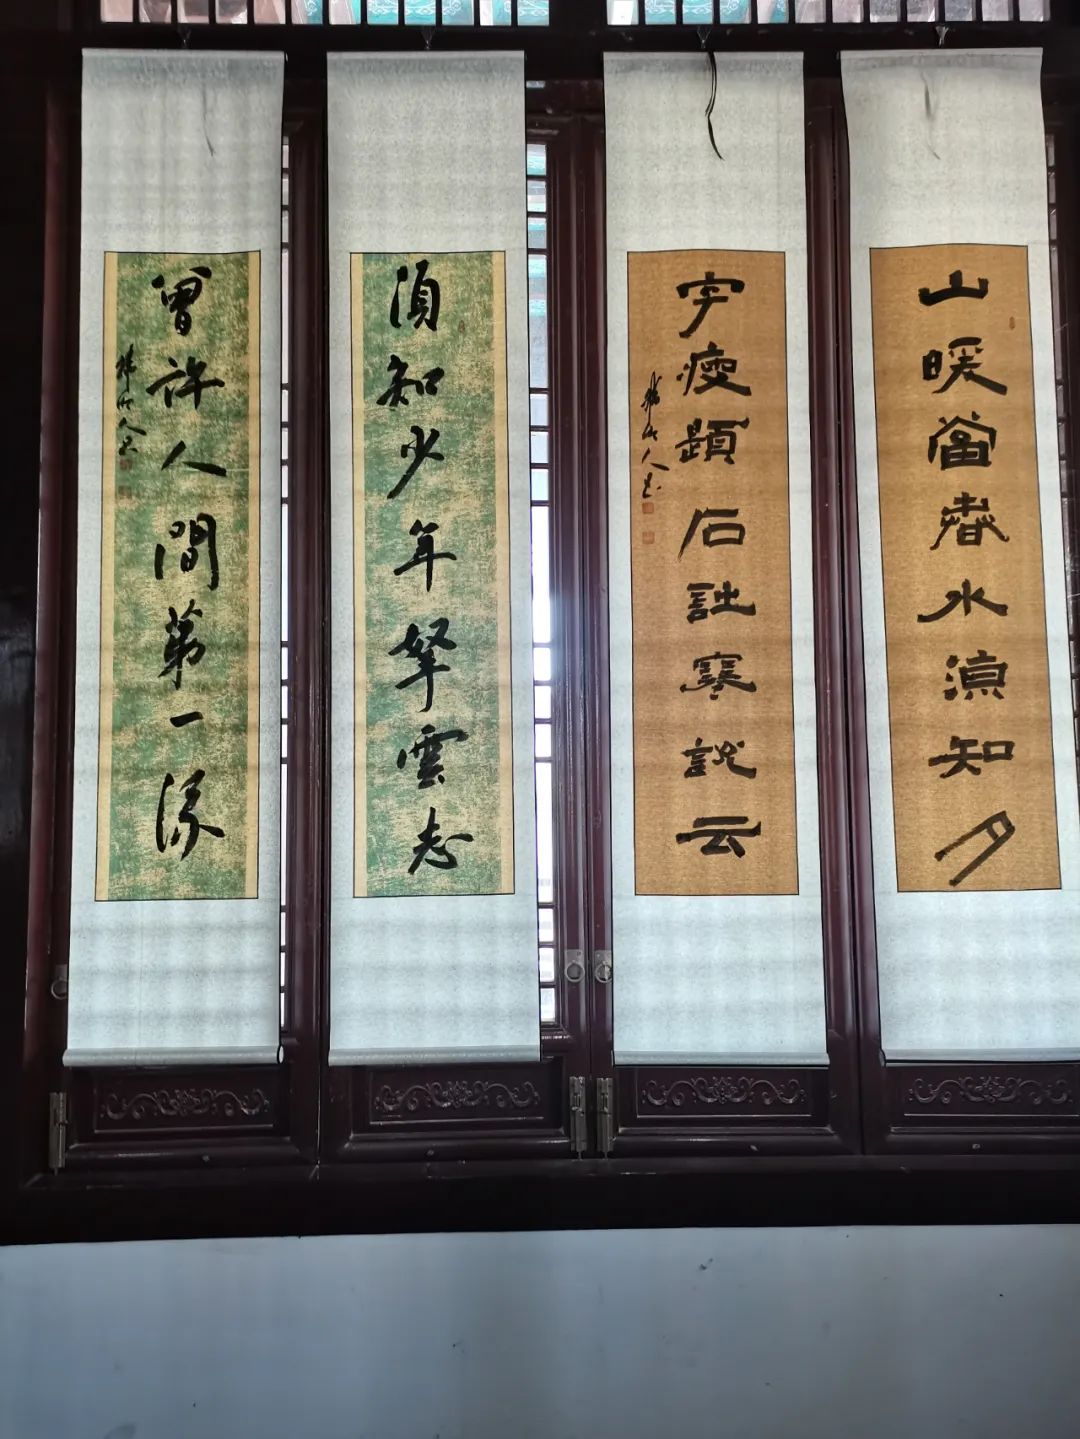 山暖當春水滇知夕
字瘦題石詘寒說云
須知少年拏雲志
曾許人間第一流